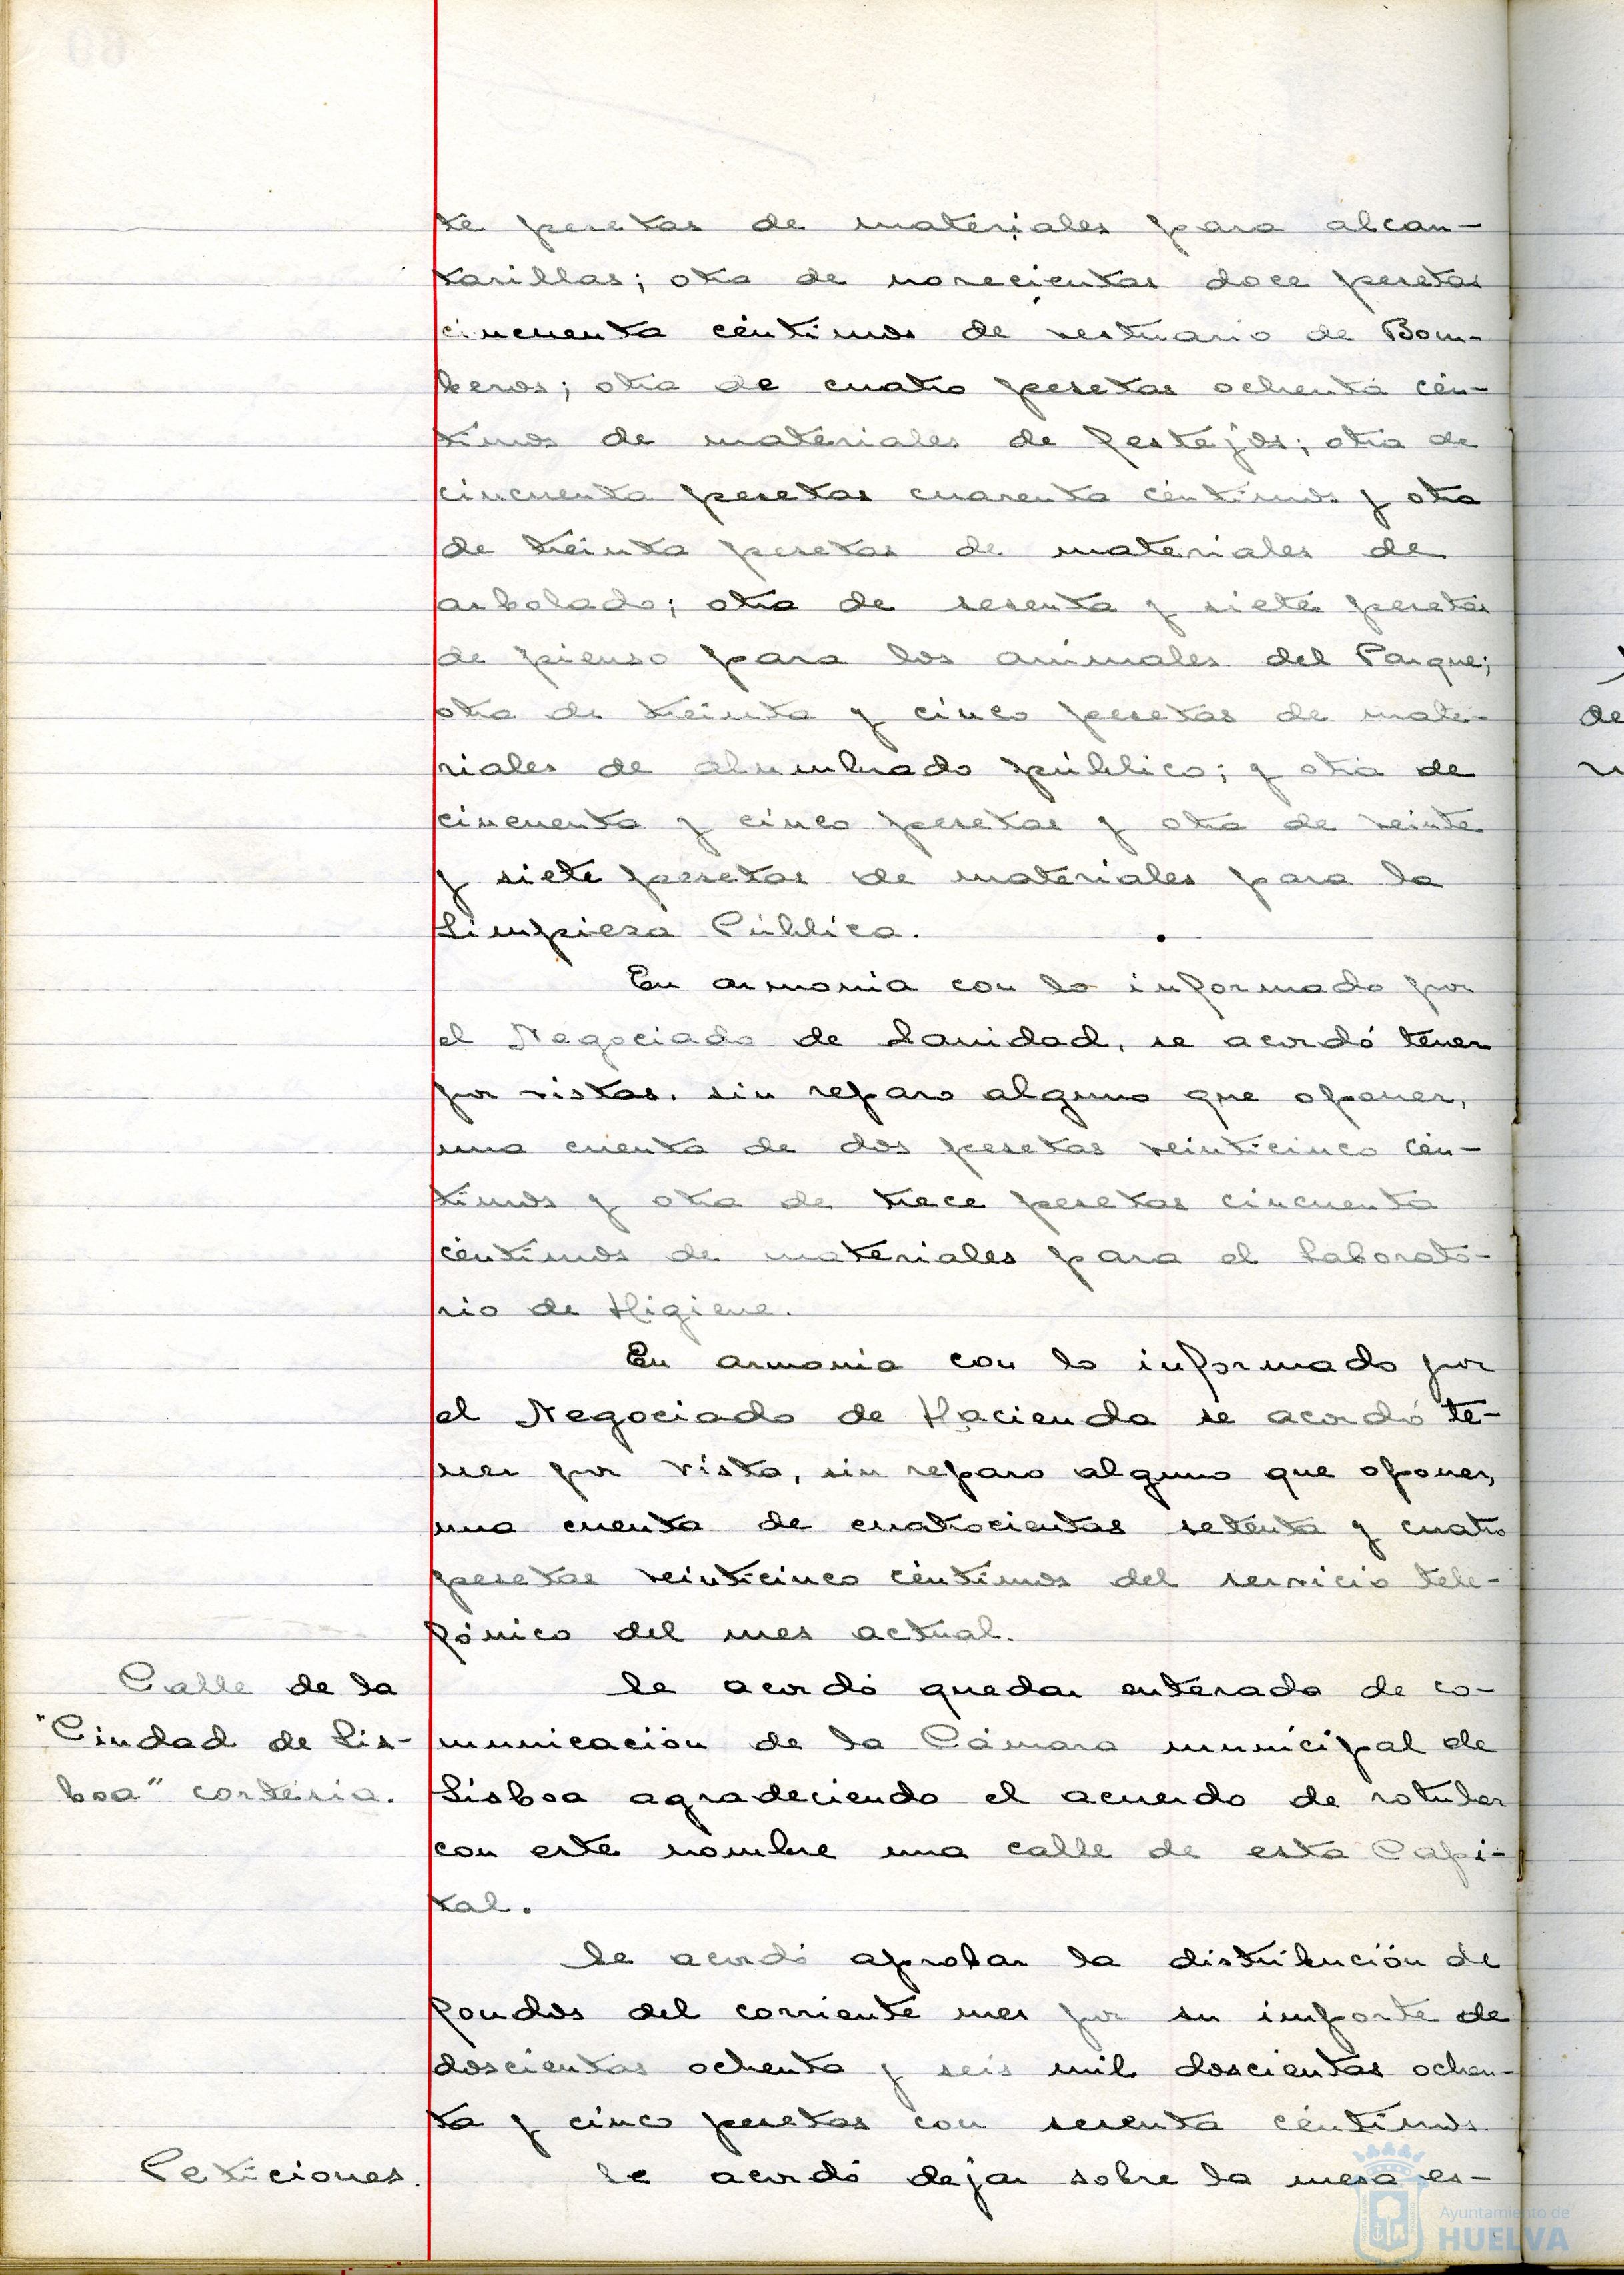 te pesetas de materiales para alcan-
tarillas; otra de novecientas doce pesetas
cincuenta céntimos de vestuario de Bom-
beros; otra de cuatro pesetas ochenta cén-
timos de materiales de festejos; otra de
cincuenta pesetas cuarenta céntimos y otra
de treinta pesetas de materiales de
arbolado; otra de sesenta y siete pesetas
de pienso para los animales del Parque;
otra de treinta y cinco pesetas de mate-
riales de alumbrado público; y otra de
cincuenta y cinco pesetas y otra de veinte
y siete pesetas de materiales para la
Limpieza Pública.
En armonia con lo informado por
el Negociado de Sanidad, se acordó tener
por vistas, sin reparo alguno que oponer,
una cuenta de dos pesetas veinticinco cén-
timos y otra de trece pesetas cincuenta
céntimos de materiales para el Laborato-
rio de Higiene.
En armonia con lo informado por
el Negociado de Hacienda se acordó te-
ner por vista, sin reparo alguno que oponer,
una cuenta de cuatrocientas setenta y cuatro
pesetas veinticinco céntimos del servicio tele-
fónico del mes actual.
Calle de la
"Ciudad de Lis-
boa" cortesia.
Se acordó quedar enterado de co-
municación de la Cámara municipal de
Lisboa agradeciendo el acuerdo de rotular
con este nombre una calle de esta Capi-
tal.
Se acordó aprobar la distribución de
fondos del corriente mes por su importe de
doscientas ochenta y seis mil doscientas ochen-
ta y cinco pesetas con sesenta céntimos.
Peticiones.
Se acordó dejar sobre la mesa es-
Ayuntamiento de
HUELVA
de